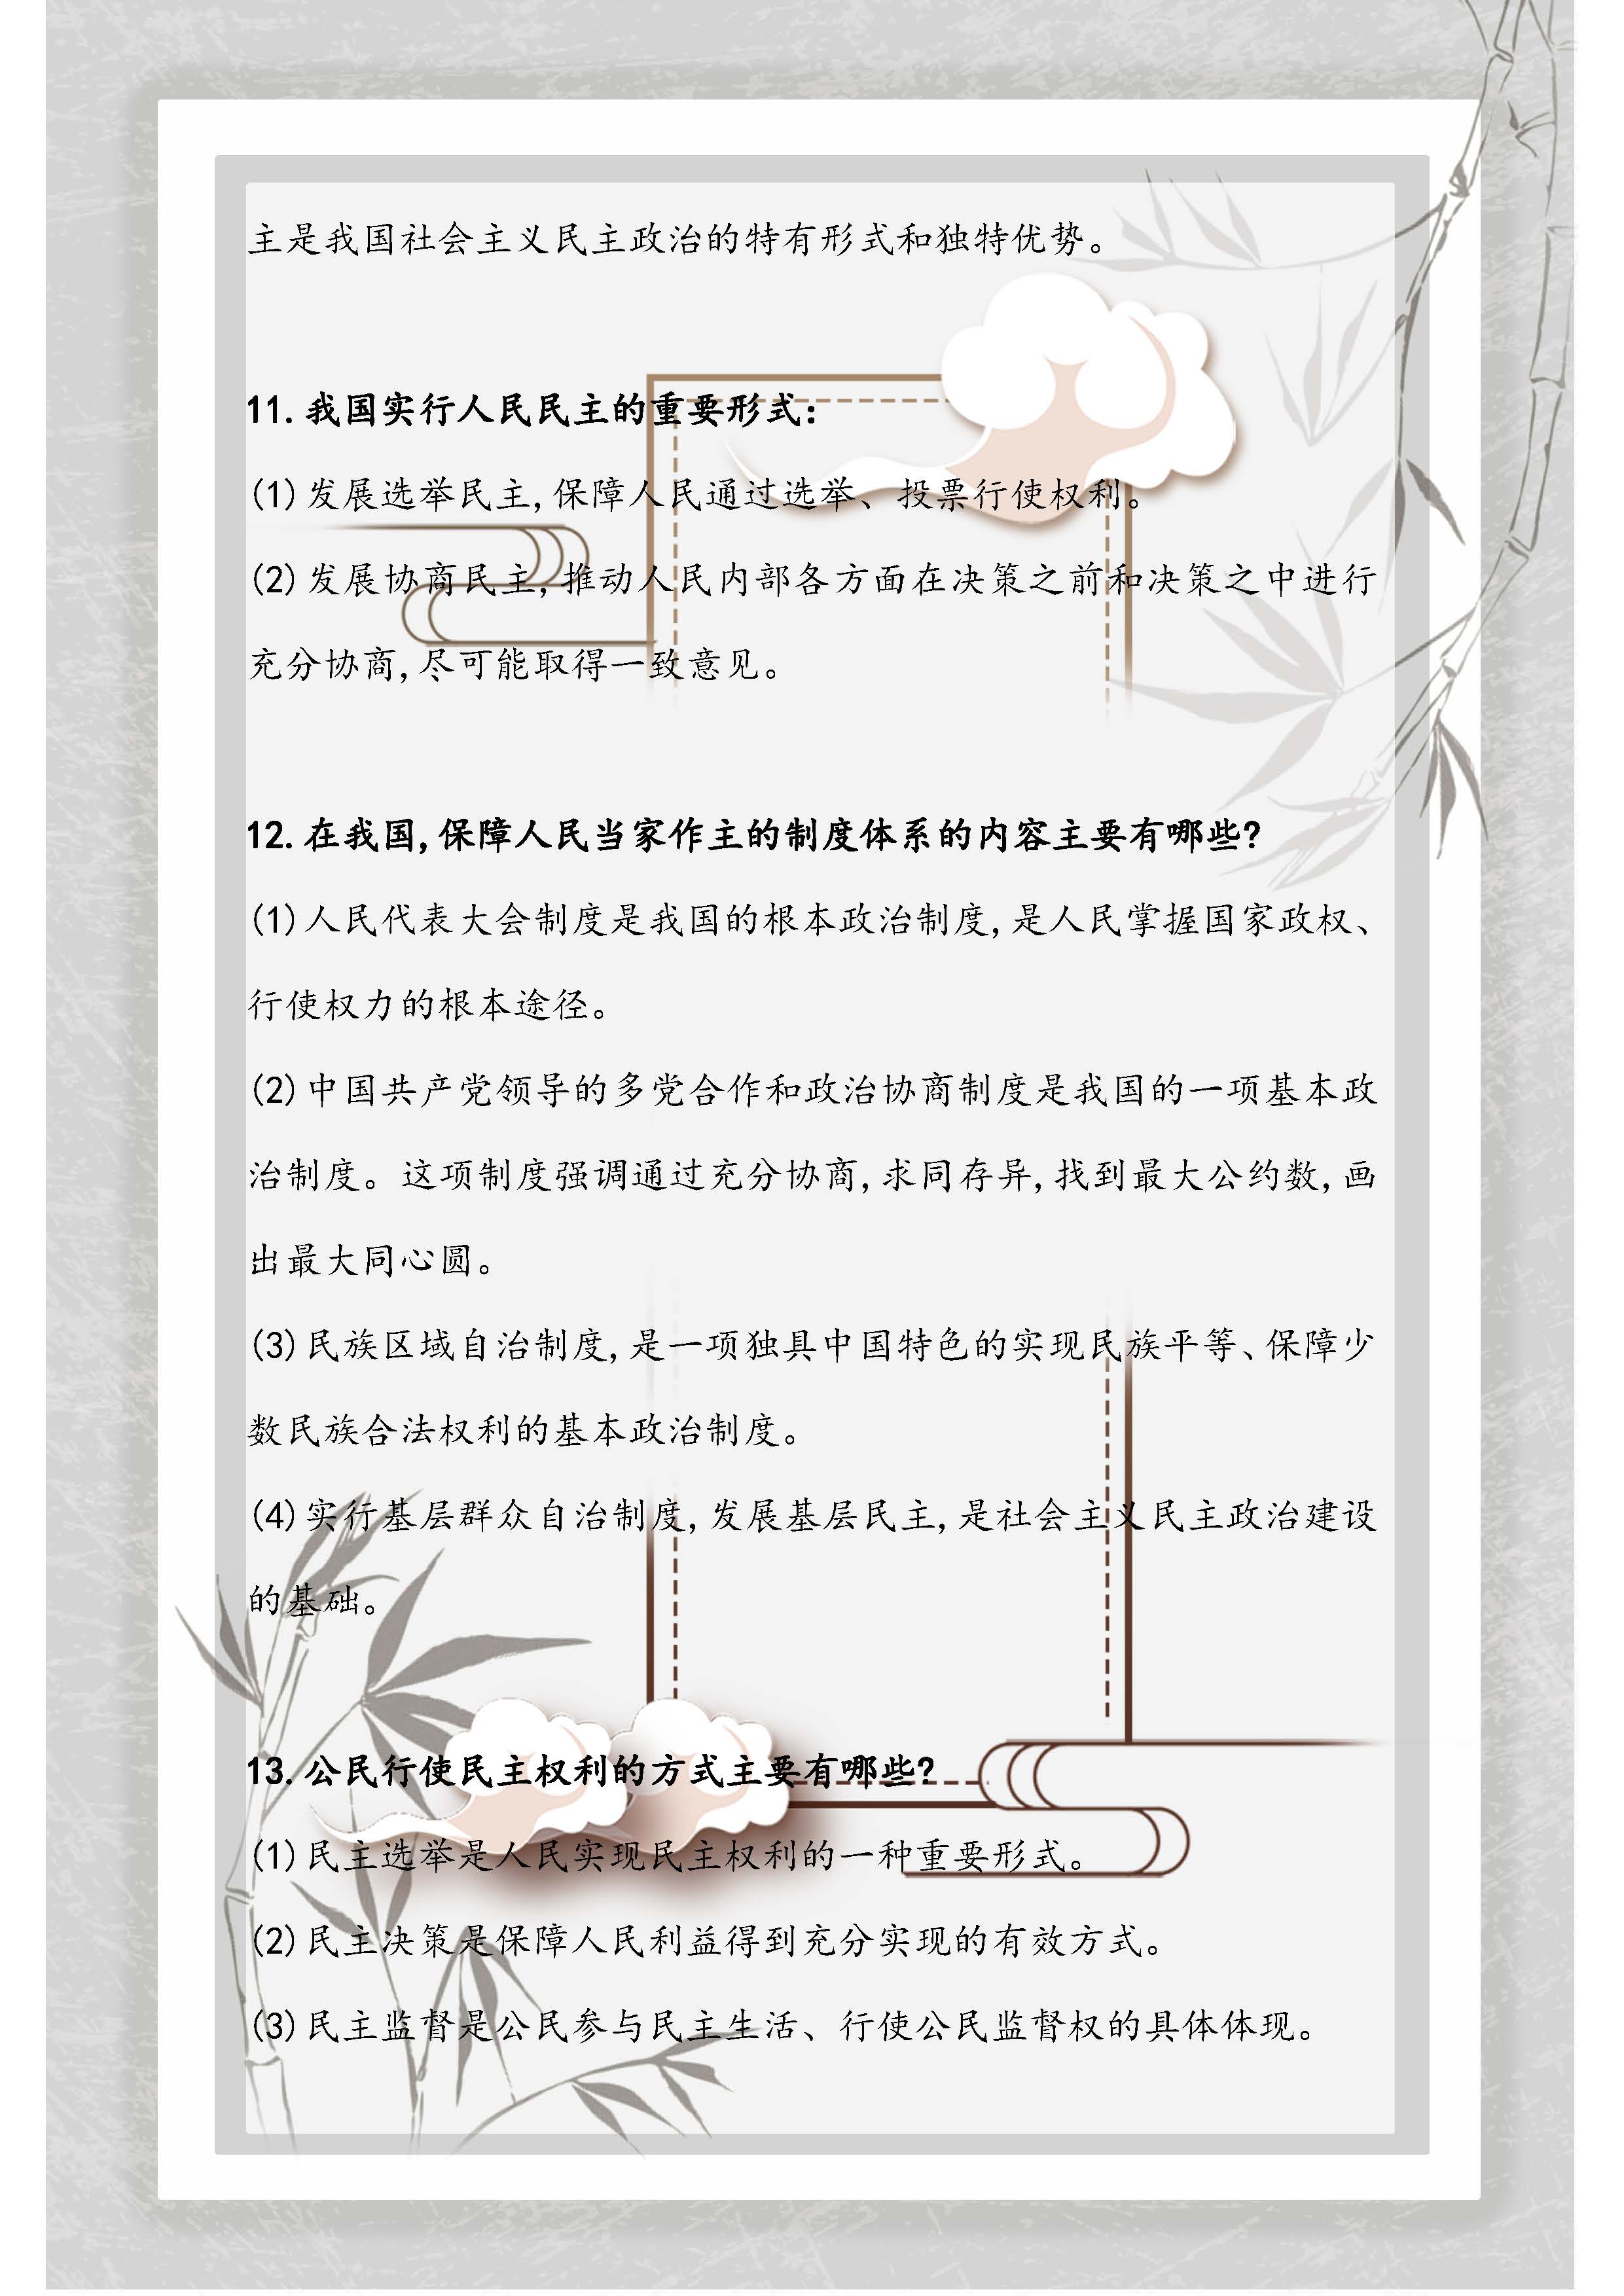 主是我国社会主义民主政治的特有形式和独特优势。
11.我国实行人民民主的重要形式:
(1)发展选举民主,保障人民通过选举、投票行使权利。
(2)发展协商民主,推动人民内部各方面在决策之前和决策之中进行
充分协商,尽可能取得一致意见。
12.在我国,保障人民当家作主的制度体系的内容主要有哪些?
(1)人民代表大会制度是我国的根本政治制度,是人民掌握国家政权、
行使权力的根本途径。
(2)中国共产党领导的多党合作和政治协商制度是我国的一项基本政
治制度。这项制度强调通过充分协商,求同存异,找到最大公约数,画
出最大同心圆。
(3)民族区域自治制度,是一项独具中国特色的实现民族平等、保障少
数民族合法权利的基本政治制度。
(4)实行基层群众自治制度,发展基层民主,是社会主义民主政治建设
的基础。
13.公民行使民主权利的方式主要有哪些?
(1)民主选举是人民实现民主权利的一种重要形式。
(2)民主决策是保障人民利益得到充分实现的有效方式。
(3)民主监督是公民参与民主生活、行使公民监督权的具体体现。